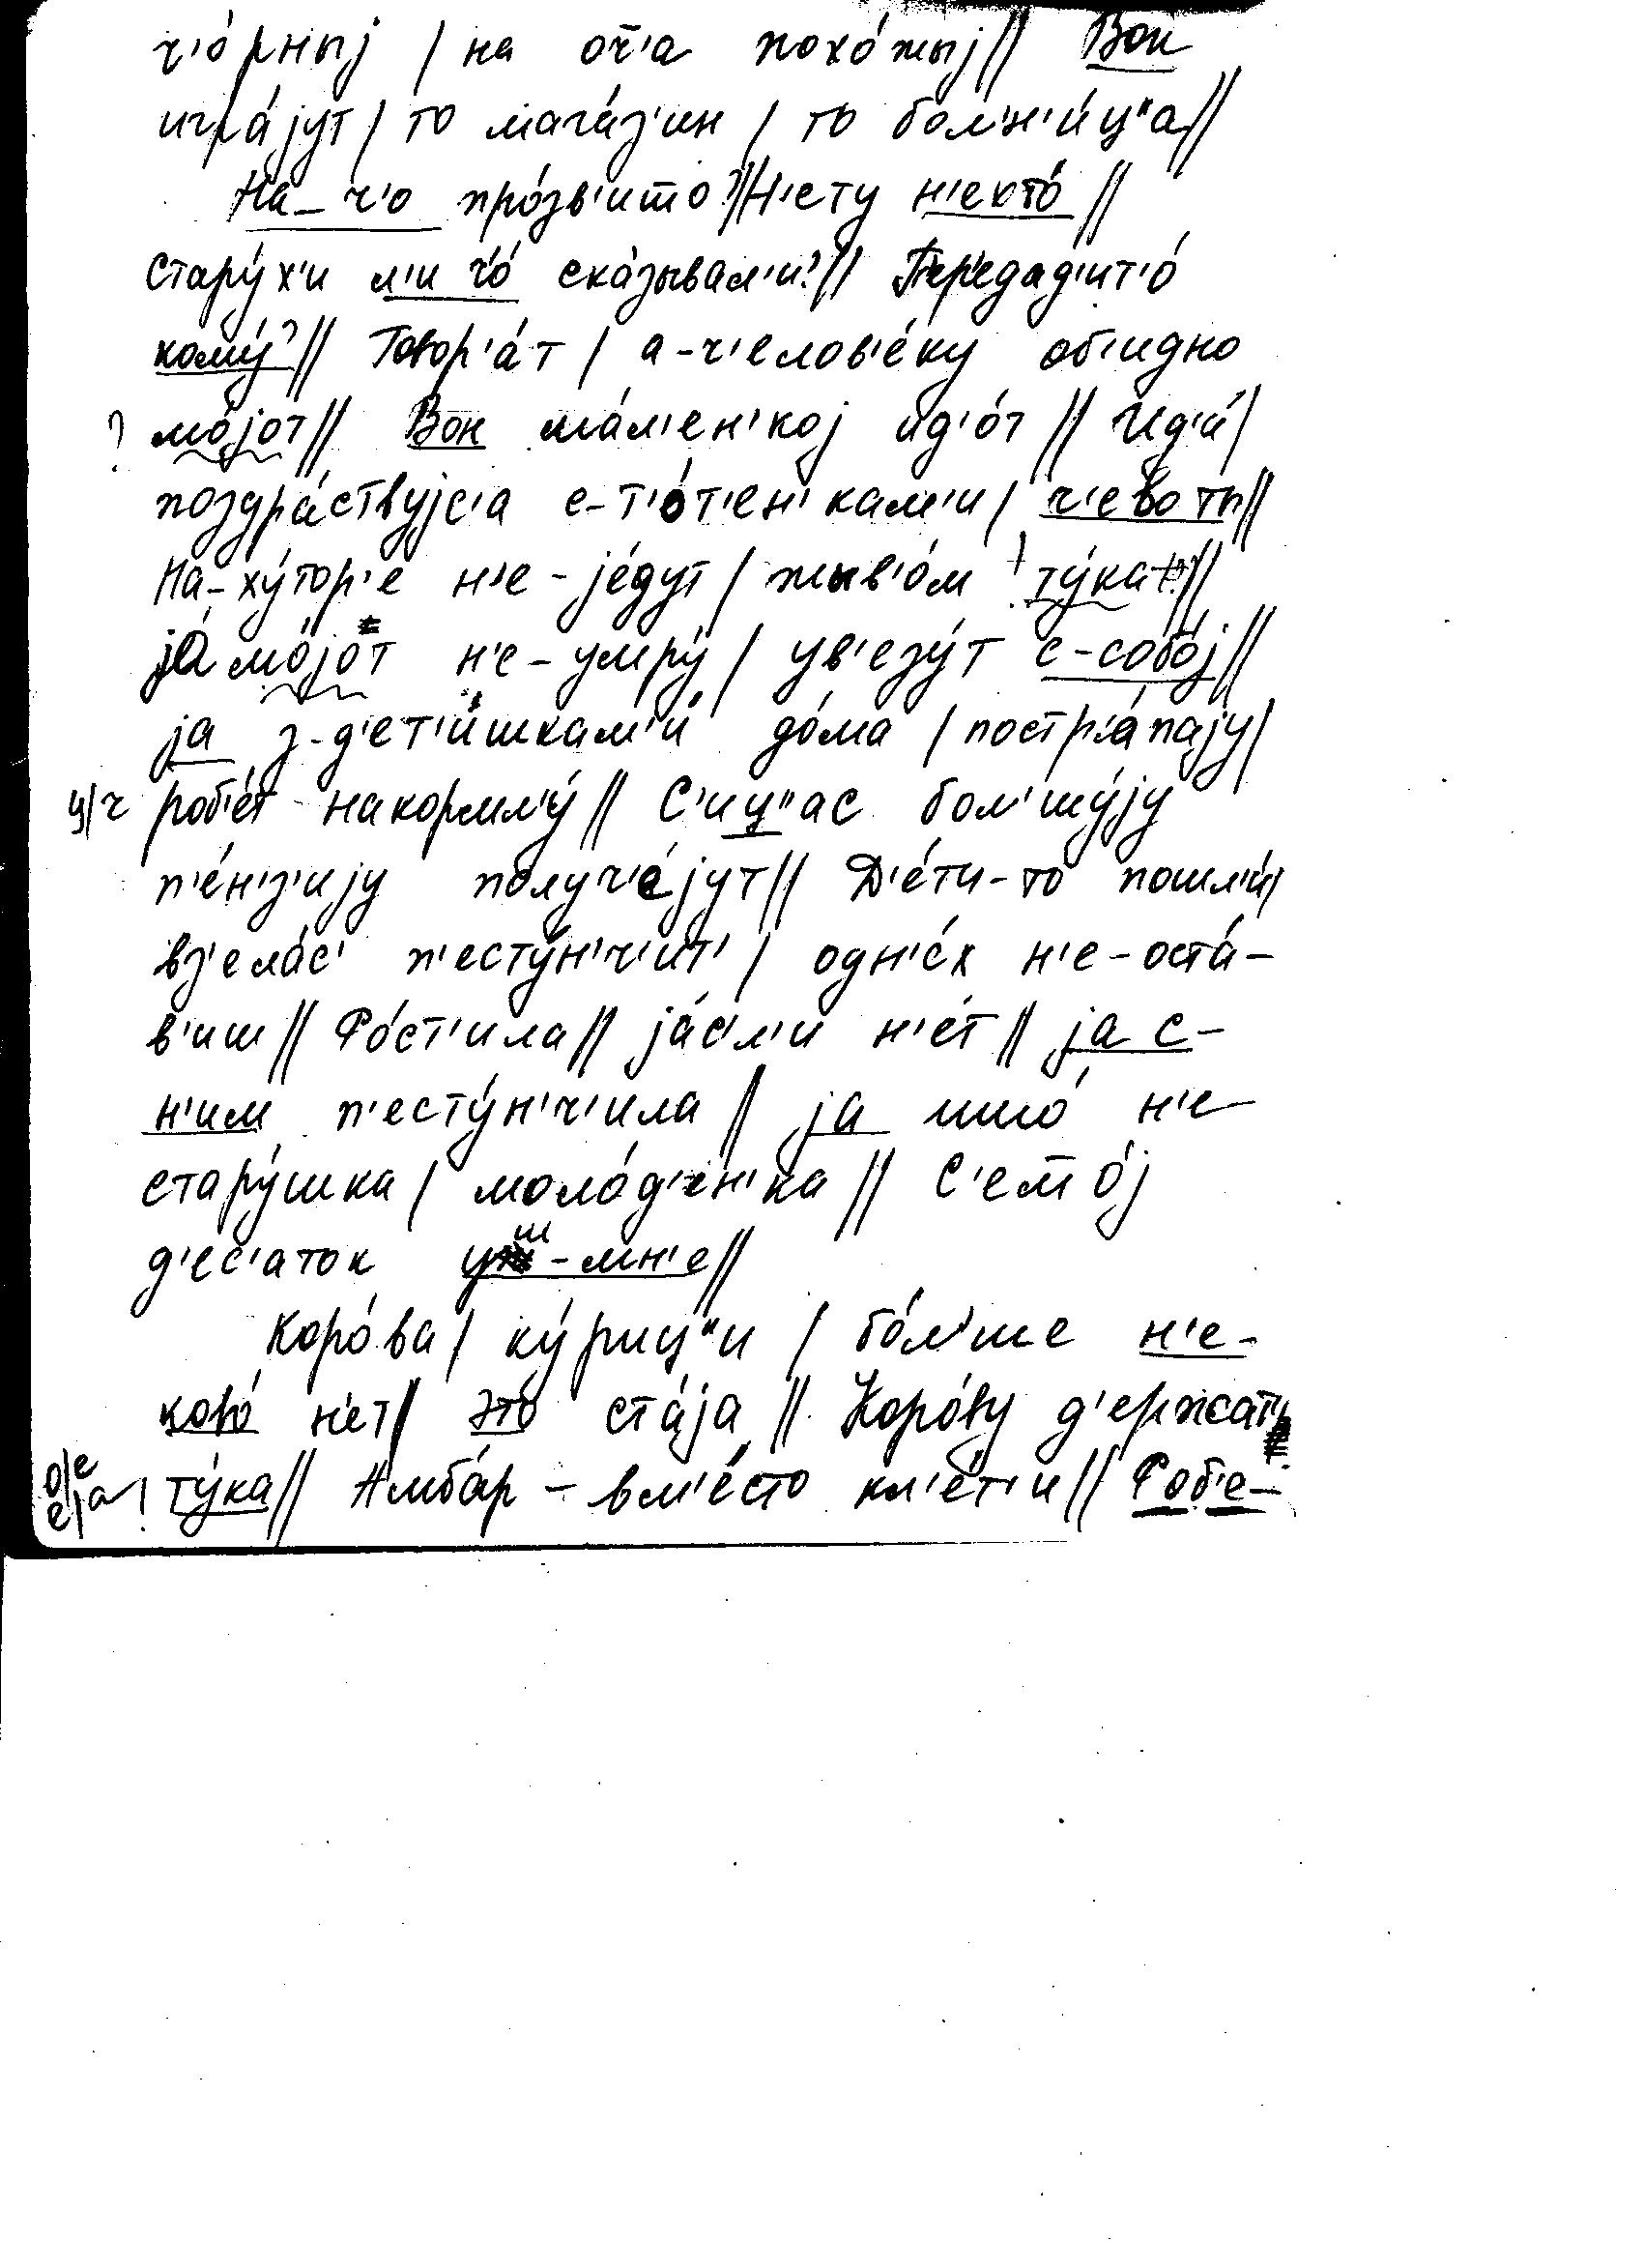 ч'о́рныj / на от̄'а похо́жыj // Вон
игра́jут / то мага́з'ин / то бол'н'и́ц"а //
На-ч'о про́зв'ишшо? // Н'ету н'ехто́ //
стару́х'и л'и ч'о́ ска́зывал'и? // П'ер'едад'ит'о́
кому́? // Говор'а́т / а-ч'елов'е́ку об'идно
? мо́jот // Вон ма́л'ен'коj ид'о́т // Ид'и́ /
поздра́ствуjс'а с-т'о́т'ен'кам'и / ч'ево ты //
На-ху́тор'е н'е-jе́дут / жыв'о́м ту́ка //
jа́ мо́jот н'е-умру́ / ув'езу́т с-собо́j //
jа з-д'ет'и́шкам'и до́ма / постр'а́паjу /
ц/ч роб'е́т накормл'у́ // С'иц"ас бол'шу́jу
п'е́нз'иjу получ'е́jут // Д'е́ти-то пошл'и́ /
вз'ела́с' п'есту́н'ч'ит' / одн'е́х н'е-оста́-
в'иш // Ро́ст'ила // jа́сл'и н'е́т // jа с-
н'им п'есту́н'ч'ила // jа ишо́ н'е
стару́шка / моло́д'ен'ка // С'ем̄о́j
д'ес'аток уш-мн'е //
Коро́ва / ку́риц"и / бо́л'ше н'е-
ково́ н'ет // это ста́jа // Коро́ву д'ержат'
о/е е/а ! ту́ка // Амба́р - вм'е́сто кл'е́т'и // Роб'е-